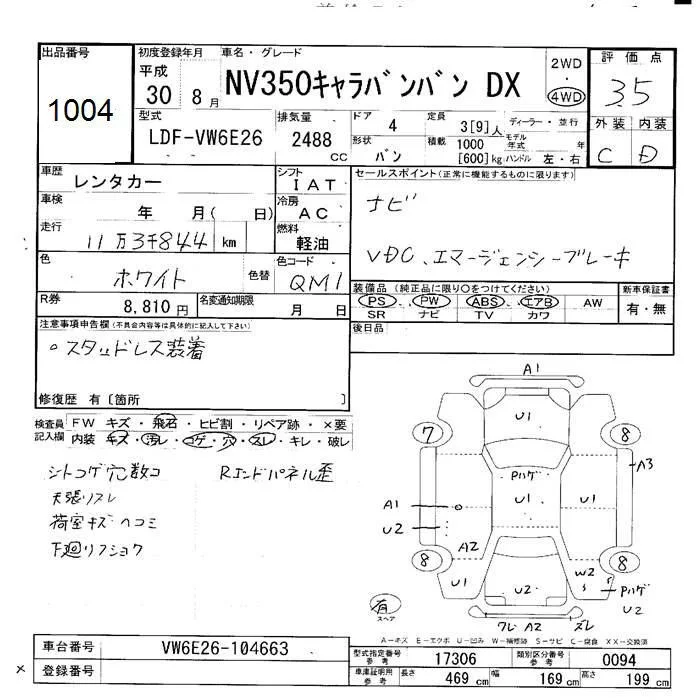 出品番号
1004
初度登録年月
平成
30 8月
車名・グレード
NV350キャラバンバン DX
2WD
・
4WD
評価点
3.5
外装 内装
C D
型式
LDF-VW6E26
排気量
2488
CC
ドア
4
形状
バン
定員
3[9]人
積載
1000
[600]kg
ディーラー・並行
モデル
年式 年
ハンドル 左・右
車歴
レンタカー
車検
年 月( 日)
走行
11万3千844 km
色
ホワイト
色替
R券
8,810円
名変通知期限
月 日
シフト
IAT
冷房
AC
燃料
軽油
色コード
QM1
セールスポイント(正常に機能するものに限ります)
ナビ
VDC、エマージェンシーブレーキ
装備品(純正品に限り○をつけてください)
PS PW ABS エアB AW
SR ナビ TV カワ
新車保証書
有・無
後日品
注意事項申告欄(不具合内容等は具体的に記入して下さい)
○スタッドレス装着
修復歴 有[箇所 ]
検査員
記入欄
FW キズ・飛石・ヒビ割・リペア跡・×要
内装 キズ・汚レ・コゲ・穴・スレ・キレ・破レ
シートコゲ穴数コ
天張リスレ
荷室キズヘコミ
下廻リフショク
Rエンドパネル歪
A1
U1
7
8
A3
Pハゲ
A1
U1
U1
U2
A2
8
8
U1
U2
W2
Pハゲ
U2
有
スペア
ワレ A2 ズレ
A-キズ E-エクボ U-凹み W-補修跡 S-サビ C-腐食 XX-交換済
車台番号
VW6E26-104663
登録番号
型式指定番号
参考
17306
類別区分番号
参考
0094
車庫証明用
参考
長さ
469 cm
幅
169 cm
高さ
199 cm
×